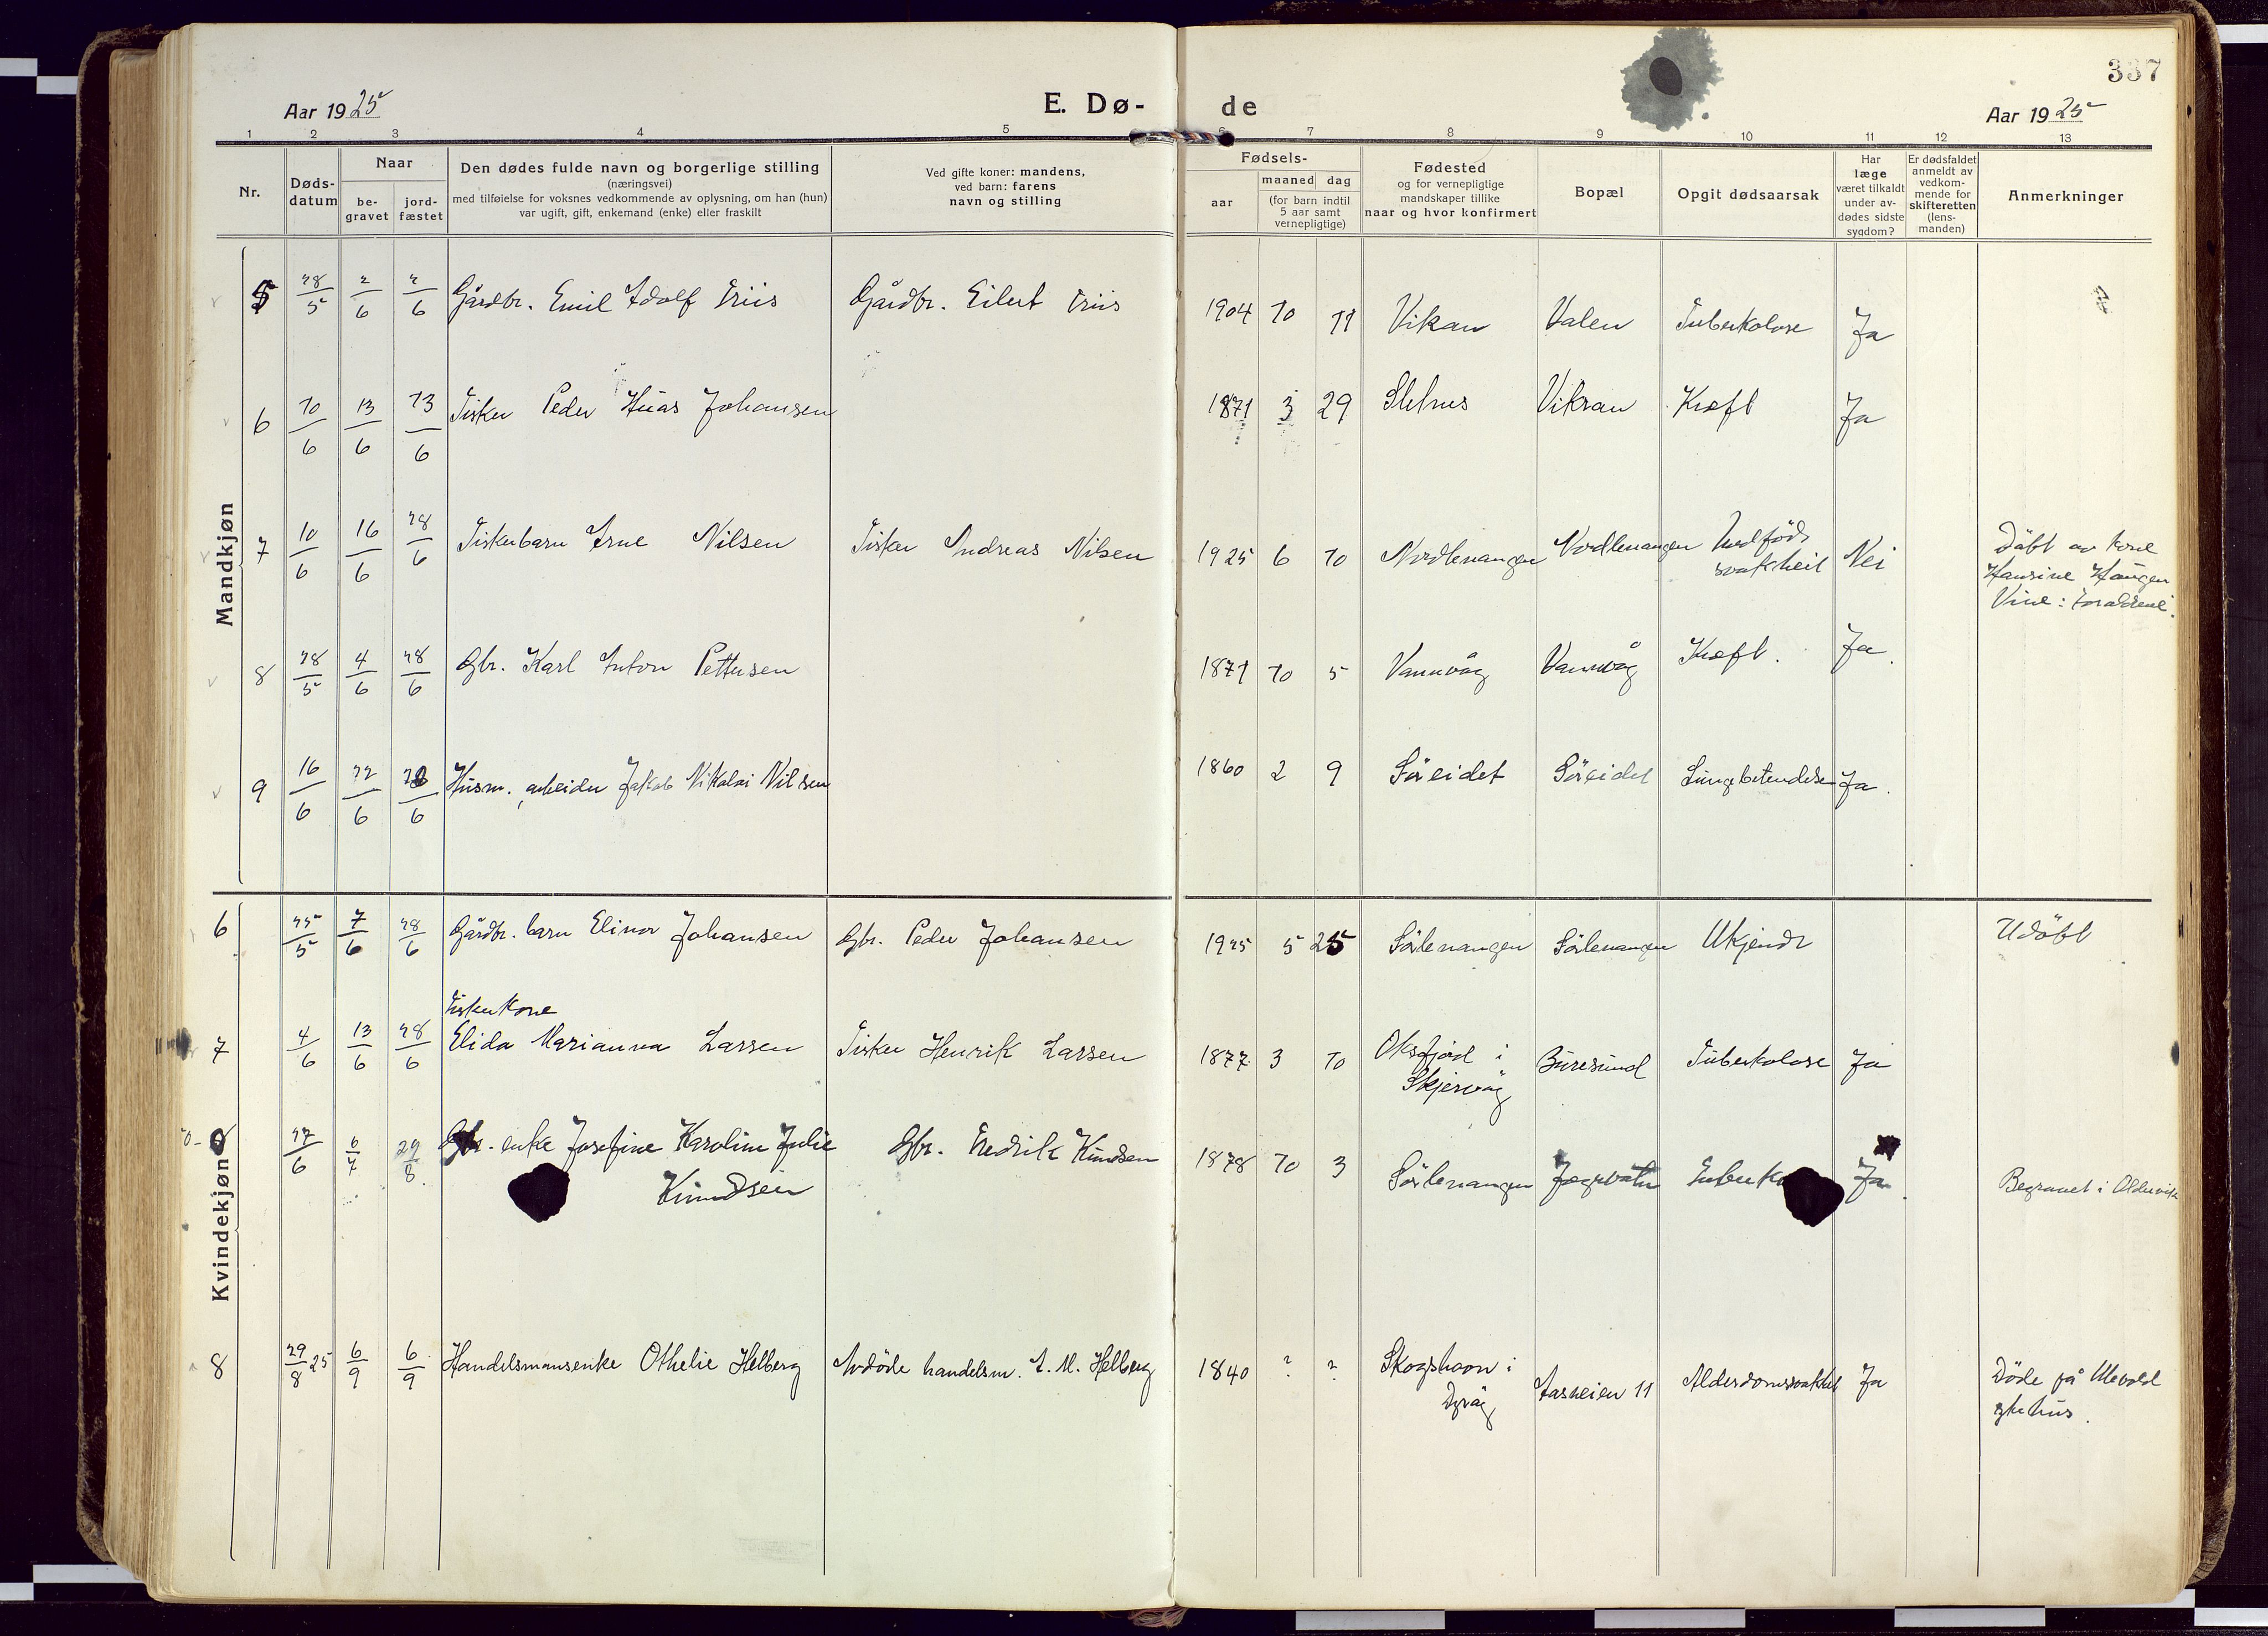 337
Aar 1925 E. Dø- de Aar 1925
1 2 3 4 5 6 7 8 9 10 11 12 13
Nr.
Døds-
datum
Naar
be-
gravet
jord-
fæstet
Den dødes fulde navn og borgerlige stilling
(næringsvei)
med tilføielse for voksnes vedkommende av oplysning, om han (hun)
var ugift, gift, enkemand (enke) eller fraskilt
Ved gifte koner: mandens,
ved barn: farens
navn og stilling
Fødsels-
aar
maaned dag
(for barn indtil
5 aar samt
vernepligtige)
Fødested
og for vernepligtige
mandskaper tillike
naar og hvor konfirmert
Bopæl
Opgit dødsaarsak
Har
læge
været tilkaldt
under av-
dødes sidste
sygdom?
Er dødsfaldet
anmeldt av
vedkom-
mende for
skifteretten
(lens-
manden)
Anmerkninger
Mandkjøn
5 28/5 2/6 2/6 Gårdbr. Emil Adolf Friis Gårdbr. Eilert Friis 1904 10 11 Vikan Valen Tuberkolose Ja
6 10/6 13/6 13/6 Fisker Peder Johansen 1871 3 29 Vikran Kræft Ja
7 10/6 16/6 28/6 Fiskerbarn Arne Nilsen Fisker Andreas Nilsen 1925 6 10 Nordlenangen Nordlenangen Medfødt
svakheit Nei Døbt av kone
Hansine Haugen
Vine: foraldrene.
8 28/5 4/6 28/6 Gbr. Karl Anton Pettersen 1871 10 5 Vannvåg Vannvåg Kræft. Ja.
9 16/6 22/6 28/6 Husm. arbeider Jakob Nikolai Nilsen 1860 2 9 Søreidet Søreidet Lungebetendelse Ja.
Kvindekjøn
6 25/5 7/6 28/6 Gårdbr. barn Elinor Johansen Gbr. Peder Johansen 1925 5 25 Sørlenangen Sørlenangen Ukjendt Udøbt
Fiskerkone
7 4/6 13/6 28/6 Elida Marianna Larsen Fisker Henrik Larsen 1877 3 10 Oksfjord i
Skjervøy Buresund Tuberkolose Ja
27/6 6/7 29/8 Gbr. enke Josefine Karoline Julie
Knudsen Gbr. Fredrik Knudsen 1878 10 3 Sørlenangen Jægervatn Tuberko Ja Begravet i Oldervik
8 29/8 25 6/9 6/9 Handelsmansenke Othelie Helberg Avdøde handelsm. A. M. Helberg 1840 ? ? Skogshavn i
Dyrøy Aasveien 11 Alderdomssvakhet Ja Døde på Ulevold
sykehus.